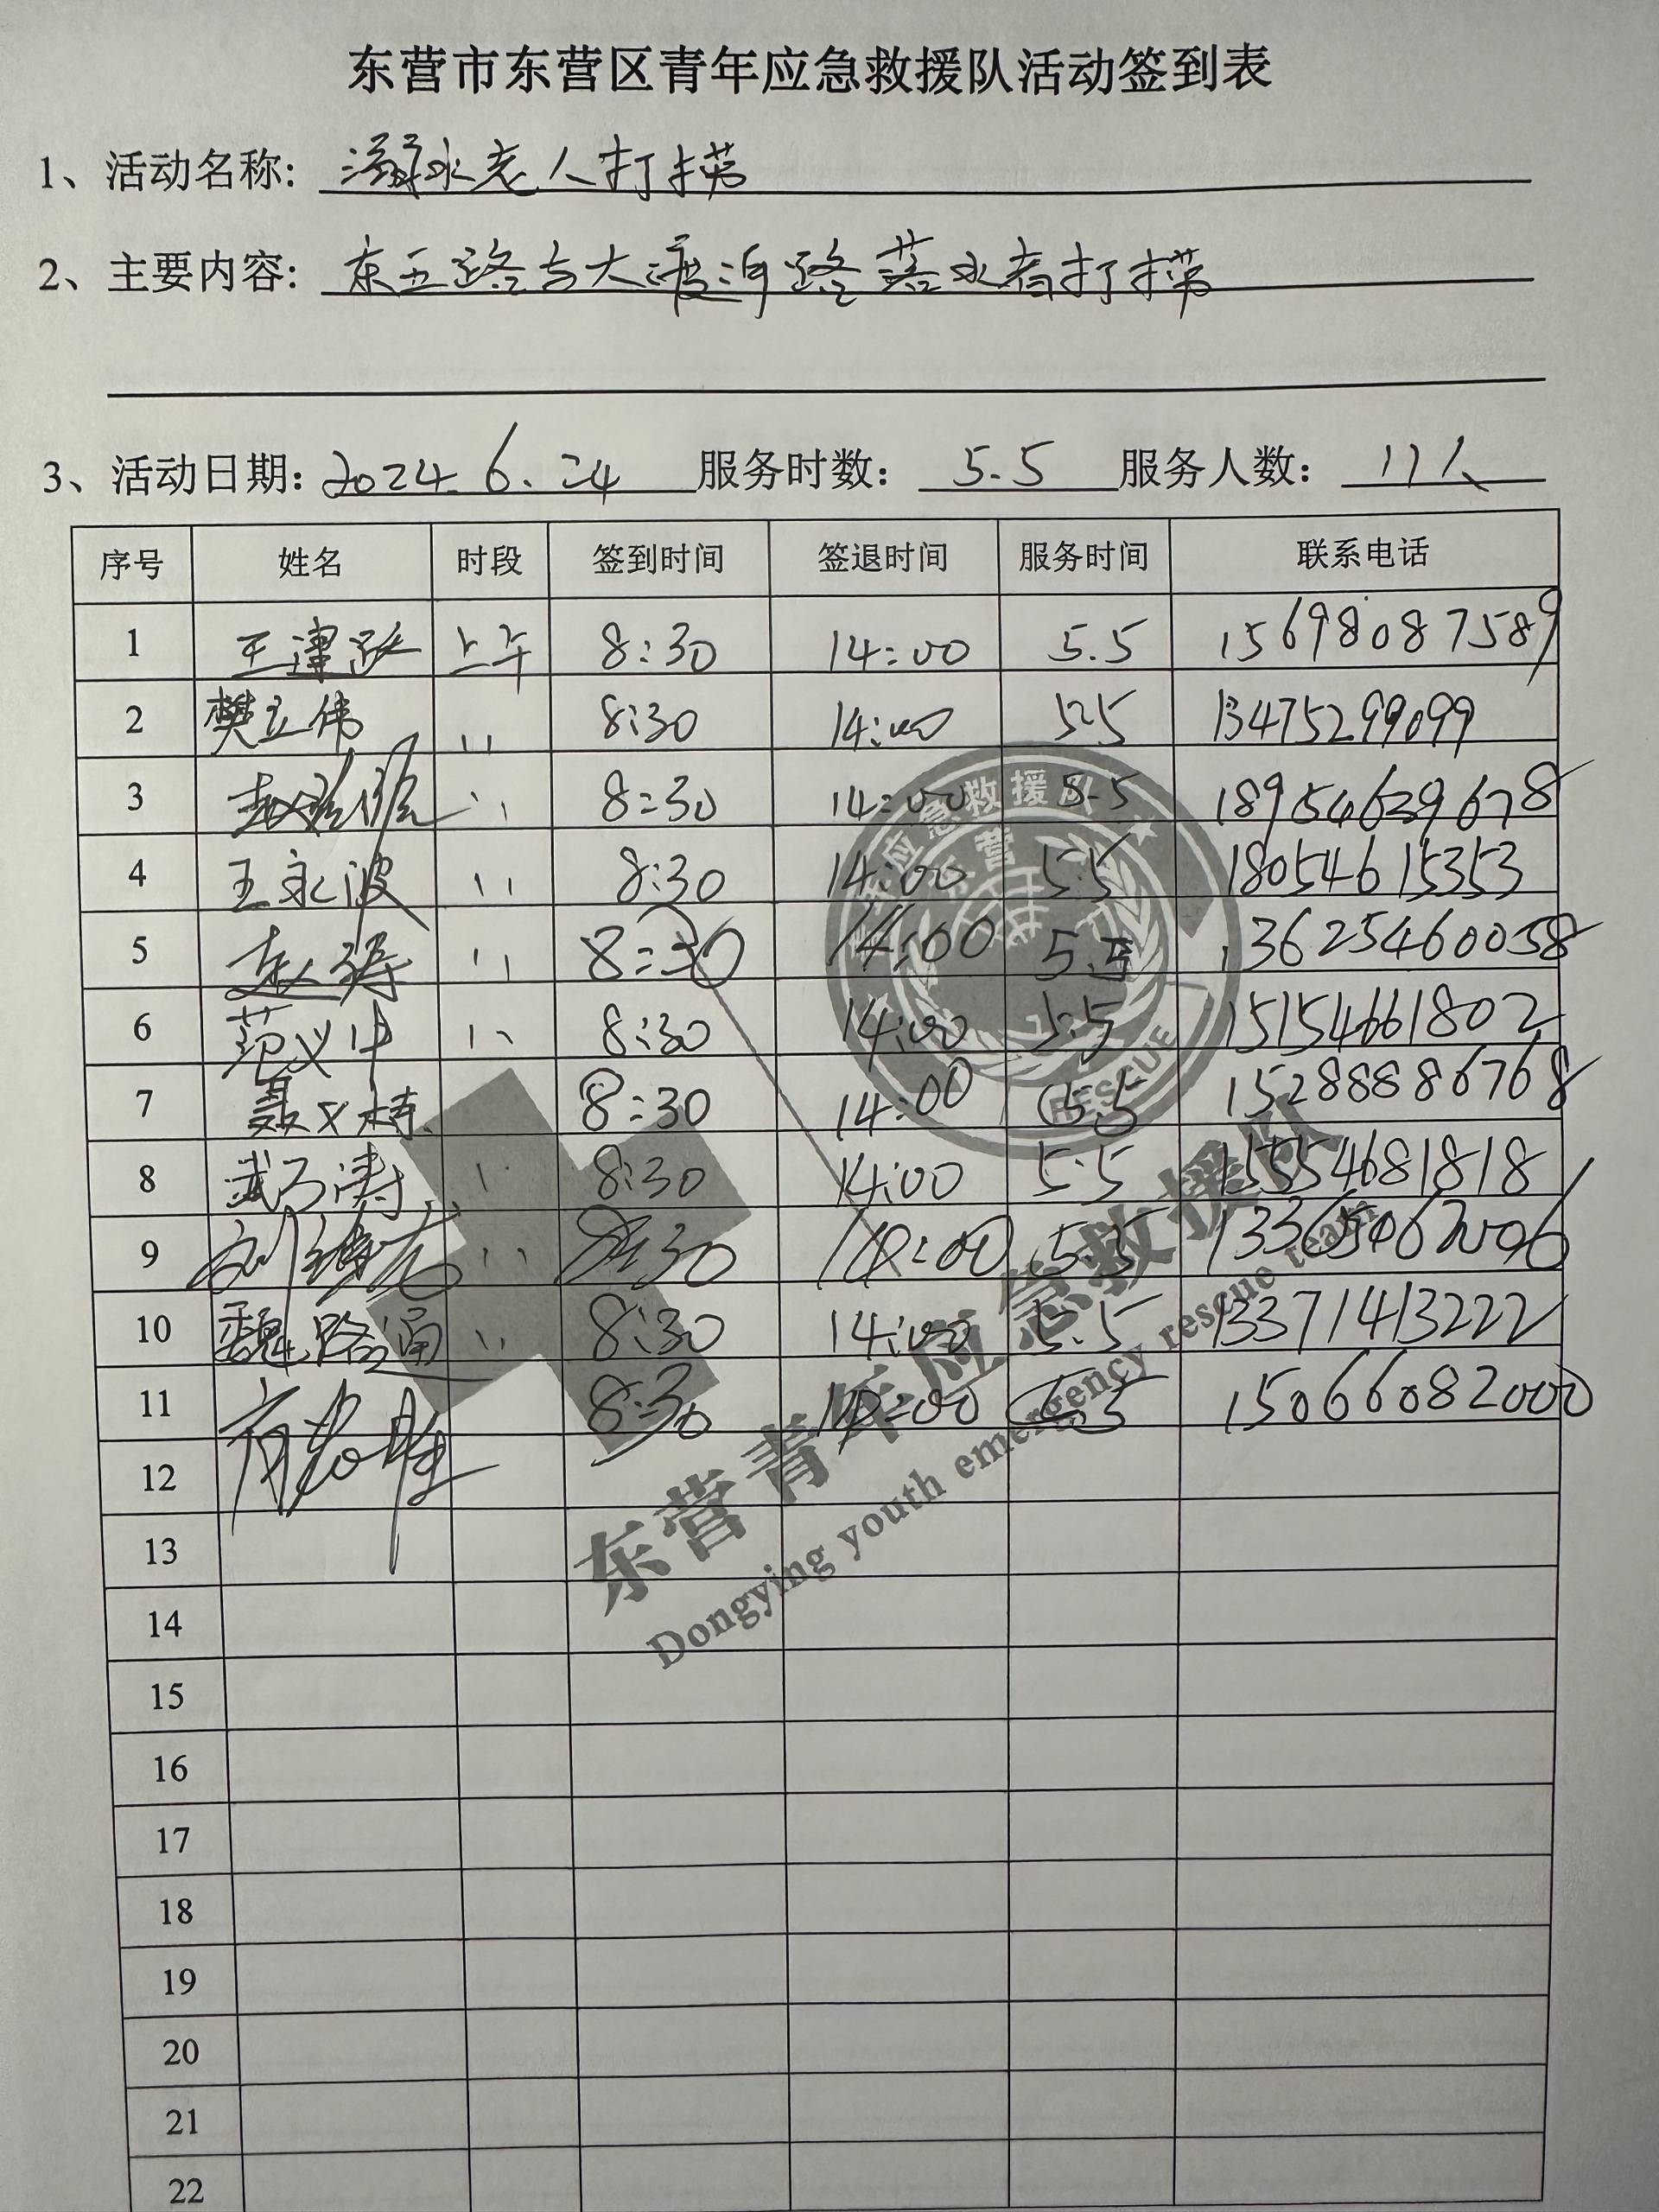 东营市东营区青年应急救援队活动签到表
1、活动名称: 溺水老人打捞
2、主要内容: 东五路与大渡河路落水者打捞
3、活动日期: 2024.6.24 服务时数: 5.5 服务人数: 11人
序号 姓名 时段 签到时间 签退时间 服务时间 联系电话
1 王津 上午 8:30 14:00 5.5 15698087589
2 樊立伟 〃 8:30 14:00 5.5 13475299099
3 赵 〃 8:30 14:00 5.5 18954639678
4 王永波 〃 8:30 14:00 5.5 18054615353
5 赵 〃 8:30 14:00 5.5 13625460058
6 范义中 〃 8:30 14:00 5.5 15154661802
7 聂文栋 8:30 14:00 5.5 15288886768
8 武乃涛 〃 8:30 14:00 5.5 15554681818
9 刘 〃 8:30 14:00 5.5
10 魏路通 〃 8:30 14:00 5.5 13371413222
11 8:30 14:00 5.5 15066082000
12
13
14
15
16
17
18
19
20
21
22
应急救援队
东营
RESCUE
东营青年应急救援队
Dongying youth emergency rescue team